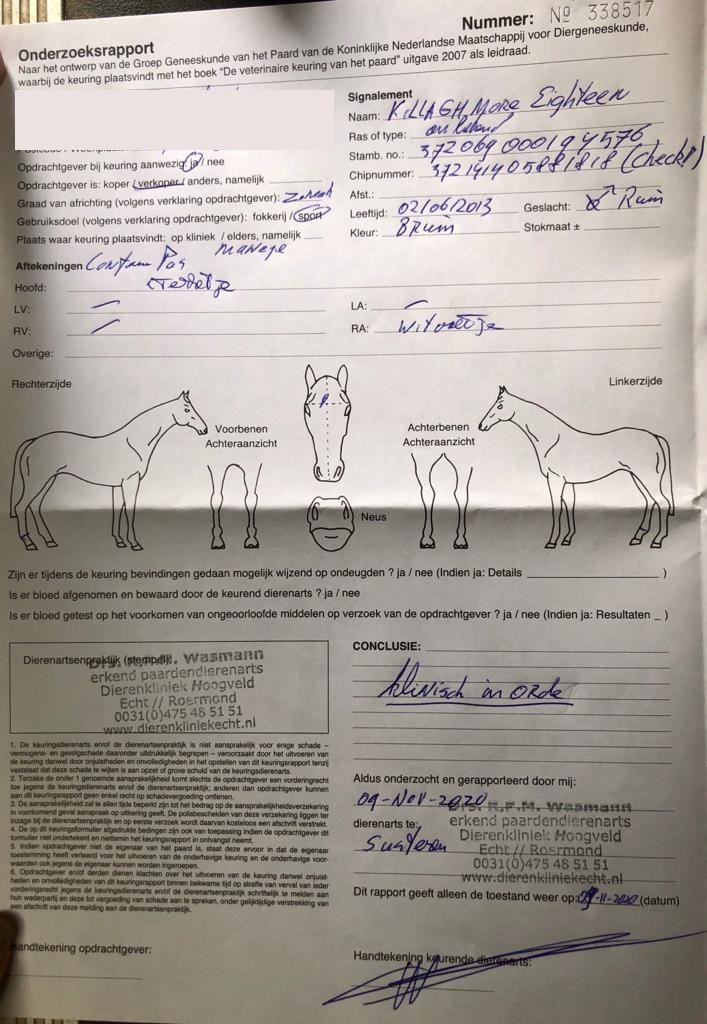 Nummer: Nº 338517
Onderzoeksrapport
Naar het ontwerp van de Groep Geneeskunde van het Paard van de Koninklijke Nederlandse Maatschappij voor Diergeneeskunde,
waarbij de keuring plaatsvindt met het boek "De veterinaire keuring van het paard" uitgave 2007 als leidraad.
Opdrachtgever bij keuring aanwezig: ja / nee
Opdrachtgever is: koper / verkoper / anders, namelijk
Graad van africhting (volgens verklaring opdrachtgever):
Gebruiksdoel (volgens verklaring opdrachtgever): fokkerij / sport
Plaats waar keuring plaatsvindt: op kliniek / elders, namelijk
Manege
Signalement
Naam: KILLAGH More Eighteen
Ras of type:
Stamb. no.: 372069000194576
Chipnummer: 372141405881818 (Check!)
Afst.:
Leeftijd: 02/06/2013 Geslacht: Ruin
Kleur: Bruin Stokmaat ±
Aftekeningen Conform Pas
Hoofd:
LV: –
RV: –
LA: –
RA: Witvoetje
Overige:
Rechterzijde
Linkerzijde
Voorbenen
Achteraanzicht
Achterbenen
Achteraanzicht
Neus
Zijn er tijdens de keuring bevindingen gedaan mogelijk wijzend op ondeugden ? ja / nee (Indien ja: Details )
Is er bloed afgenomen en bewaard door de keurend dierenarts ? ja / nee
Is er bloed getest op het voorkomen van ongeoorloofde middelen op verzoek van de opdrachtgever ? ja / nee (Indien ja: Resultaten _ )
Dierenartsenpraktijk (stempel):
Wasmann
erkend paardendierenarts
Dierenkliniek Hoogveld
Echt // Roermond
0031(0)475 48 51 51
www.dierenkliniekecht.nl
1. De keuringsdierenarts en/of de dierenartsenpraktijk is niet aansprakelijk voor enige schade –
vermogens- en gevolgschade daaronder uitdrukkelijk begrepen – veroorzaakt door het uitvoeren van
de keuring danwel door onjuistheden en onvolledigheden in het opstellen van dit keuringsrapport tenzij
vaststaat dat deze schade te wijten is aan opzet of grove schuld van de keuringsdierenarts.
2. Terzake de onder 1 genoemde aansprakelijkheid komt slechts de opdrachtgever een vorderingrecht
toe jegens de keuringsdierenarts en/of de dierenartsenpraktijk; anderen dan opdrachtgever kunnen
aan dit keuringsrapport geen enkel recht op schadevergoeding ontlenen.
3. De aansprakelijkheid zal te allen tijde beperkt zijn tot het bedrag en de aansprakelijkheidsverzekering
in voorkomend geval aanspraak op uitkering geeft. De polisbescheiden van deze verzekering liggen ter
inzage bij de dierenartsenpraktijk en op eerste verzoek wordt daarvan kosteloos een afschrift verstrekt.
4. De op dit keuringsformulier afgedrukte bedingen zijn ook van toepassing indien de opdrachtgever dit
formulier niet ondertekent en niettemin het keuringsrapport in ontvangst neemt.
5. Indien opdrachtgever niet de eigenaar van het paard is, staat deze ervoor in dat de eigenaar
toestemming heeft verleend voor het uitvoeren van de onderhavige keuring en de onderhavige voor-
waarden ook jegens de eigenaar kunnen worden ingeroepen.
6. Opdrachtgever en/of derden dienen klachten over het uitvoeren van de keuring danwel onjuist-
heden en onvolledigheden van dit keuringsrapport binnen bekwame tijd op straffe van verval van ieder
vorderingsrecht jegens de keuringsdierenarts en/of de dierenartsenpraktijk schriftelijk te melden aan
hun wederpartij en deze tot vergoeding van schade aan te spreken, onder gelijktijdige verstrekking van
een afschrift van deze melding aan de dierenartsenpraktijk.
Handtekening opdrachtgever:
CONCLUSIE:
klinisch in orde
Aldus onderzocht en gerapporteerd door mij:
09-Nov-2020
Wasmann
dierenarts te:
Susteren
erkend paardendierenarts
Dierenkliniek Hoogveld
Echt // Roermond
0031(0)475 48 51 51
www.dierenkliniekecht.nl
Dit rapport geeft alleen de toestand weer op: 09-11-2020 (datum)
Handtekening keurende dierenarts: